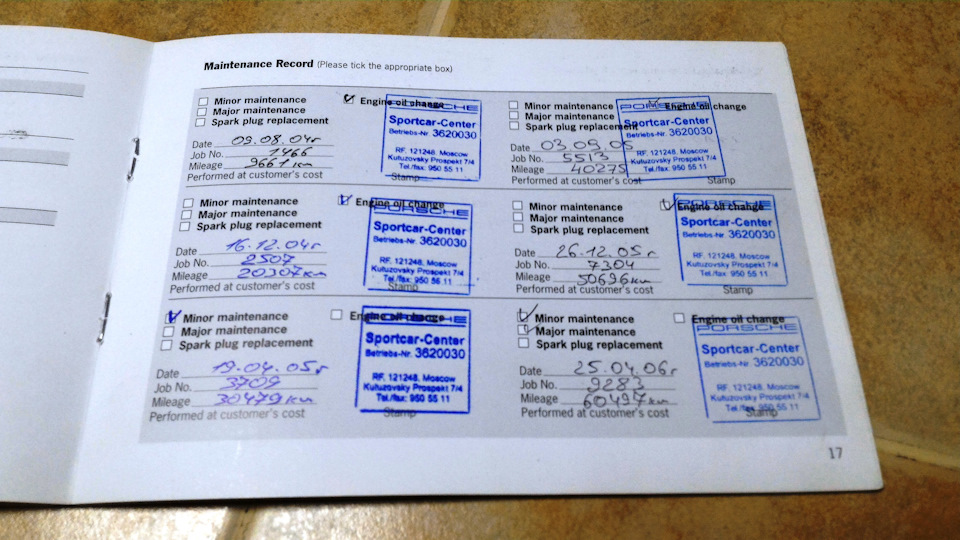 Maintenance Record (Please tick the appropriate box)
Minor maintenance
Major maintenance
Spark plug replacement
Engine oil change
Date 09.08.04г
Job No. 1466
Mileage 9661км
Performed at customer's cost
Stamp
PORSCHE
Sportcar-Center
Betriebs-Nr. 3620030
RF. 121248. Moscow
Kutuzovsky Prospekt 7/4
Tel./fax: 950 55 11
Minor maintenance
Major maintenance
Spark plug replacement
Engine oil change
Date 03.09.05
Job No. 5513
Mileage 40275
Performed at customer's cost
Stamp
PORSCHE
Sportcar-Center
Betriebs-Nr. 3620030
RF. 121248. Moscow
Kutuzovsky Prospekt 7/4
Tel./fax: 950 55 11
Minor maintenance
Major maintenance
Spark plug replacement
Engine oil change
Date 16.12.04г
Job No. 2507
Mileage 20307км
Performed at customer's cost
Stamp
PORSCHE
Sportcar-Center
Betriebs-Nr. 3620030
RF. 121248. Moscow
Kutuzovsky Prospekt 7/4
Tel./fax: 950 55 11
Minor maintenance
Major maintenance
Spark plug replacement
Engine oil change
Date 26.12.05г
Job No. 7304
Mileage 50696км
Performed at customer's cost
Stamp
PORSCHE
Sportcar-Center
Betriebs-Nr. 3620030
RF. 121248. Moscow
Kutuzovsky Prospekt 7/4
Tel./fax: 950 55 11
Minor maintenance
Major maintenance
Spark plug replacement
Engine oil change
Date 19.04.05г
Job No. 3709
Mileage 30479км
Performed at customer's cost
Stamp
PORSCHE
Sportcar-Center
Betriebs-Nr. 3620030
RF. 121248. Moscow
Kutuzovsky Prospekt 7/4
Tel./fax: 950 55 11
Minor maintenance
Major maintenance
Spark plug replacement
Engine oil change
Date 25.04.06г
Job No. 9283
Mileage 60497км
Performed at customer's cost
Stamp
PORSCHE
Sportcar-Center
Betriebs-Nr. 3620030
RF. 121248. Moscow
Kutuzovsky Prospekt 7/4
Tel./fax: 950 55 11
17